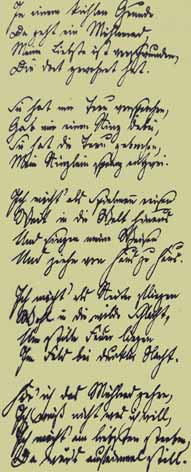 In einem kühlen Grunde
Da geht ein Mühlenrad,
Meine Liebste ist verschwunden,
Die dort gewohnet hat.
Sie hat mir Treu versprochen,
Gab mir einen Ring dabei,
Sie hat die Treu gebrochen,
Mein Ringlein sprang entzwei.
Ich möcht' als Spielmann reisen
Weit in die Welt hinaus
Und singen meine Weisen
Und ziehn von Haus zu Haus.
Ich möcht' als Reiter fliegen
Wohl in die wilde Schlacht,
Um stille Feuer liegen
Im Feld bei dunkler Nacht.
Hör' ich das Mühlrad gehen,
Ich weiß nicht, was ich will,
Ich möcht' am liebsten sterben,
Da wär's auf einmal still.